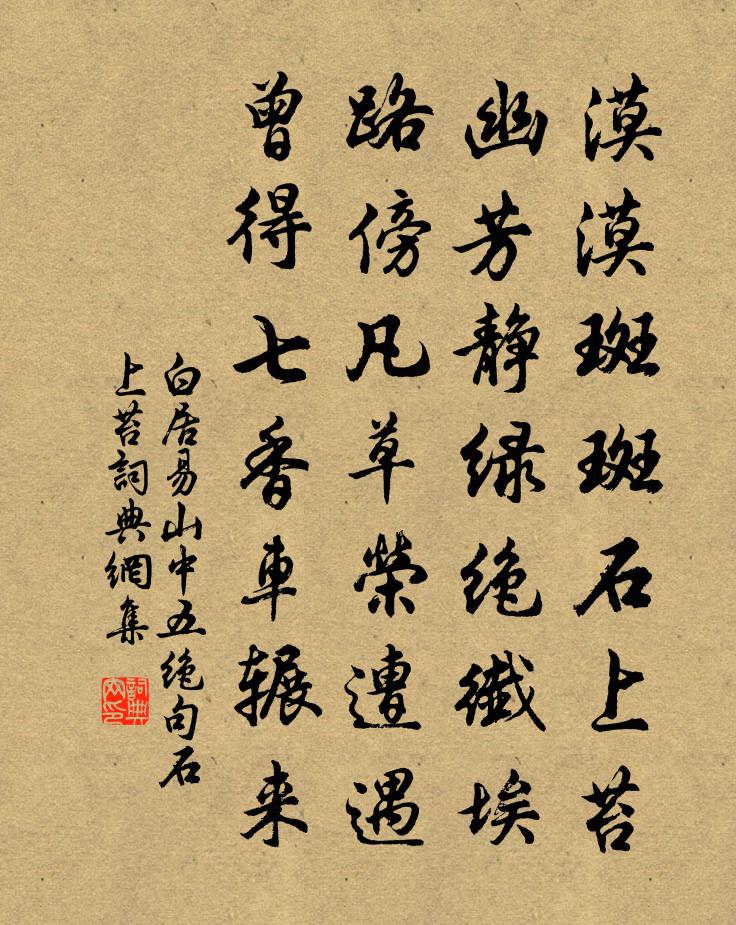 漠漠斑斑石上苔
幽芳静绿绝纤埃
路傍凡草荣遭遇
曾得七香车辗来
白居易山中五绝句石
上苔詞典網集
詞典
网印